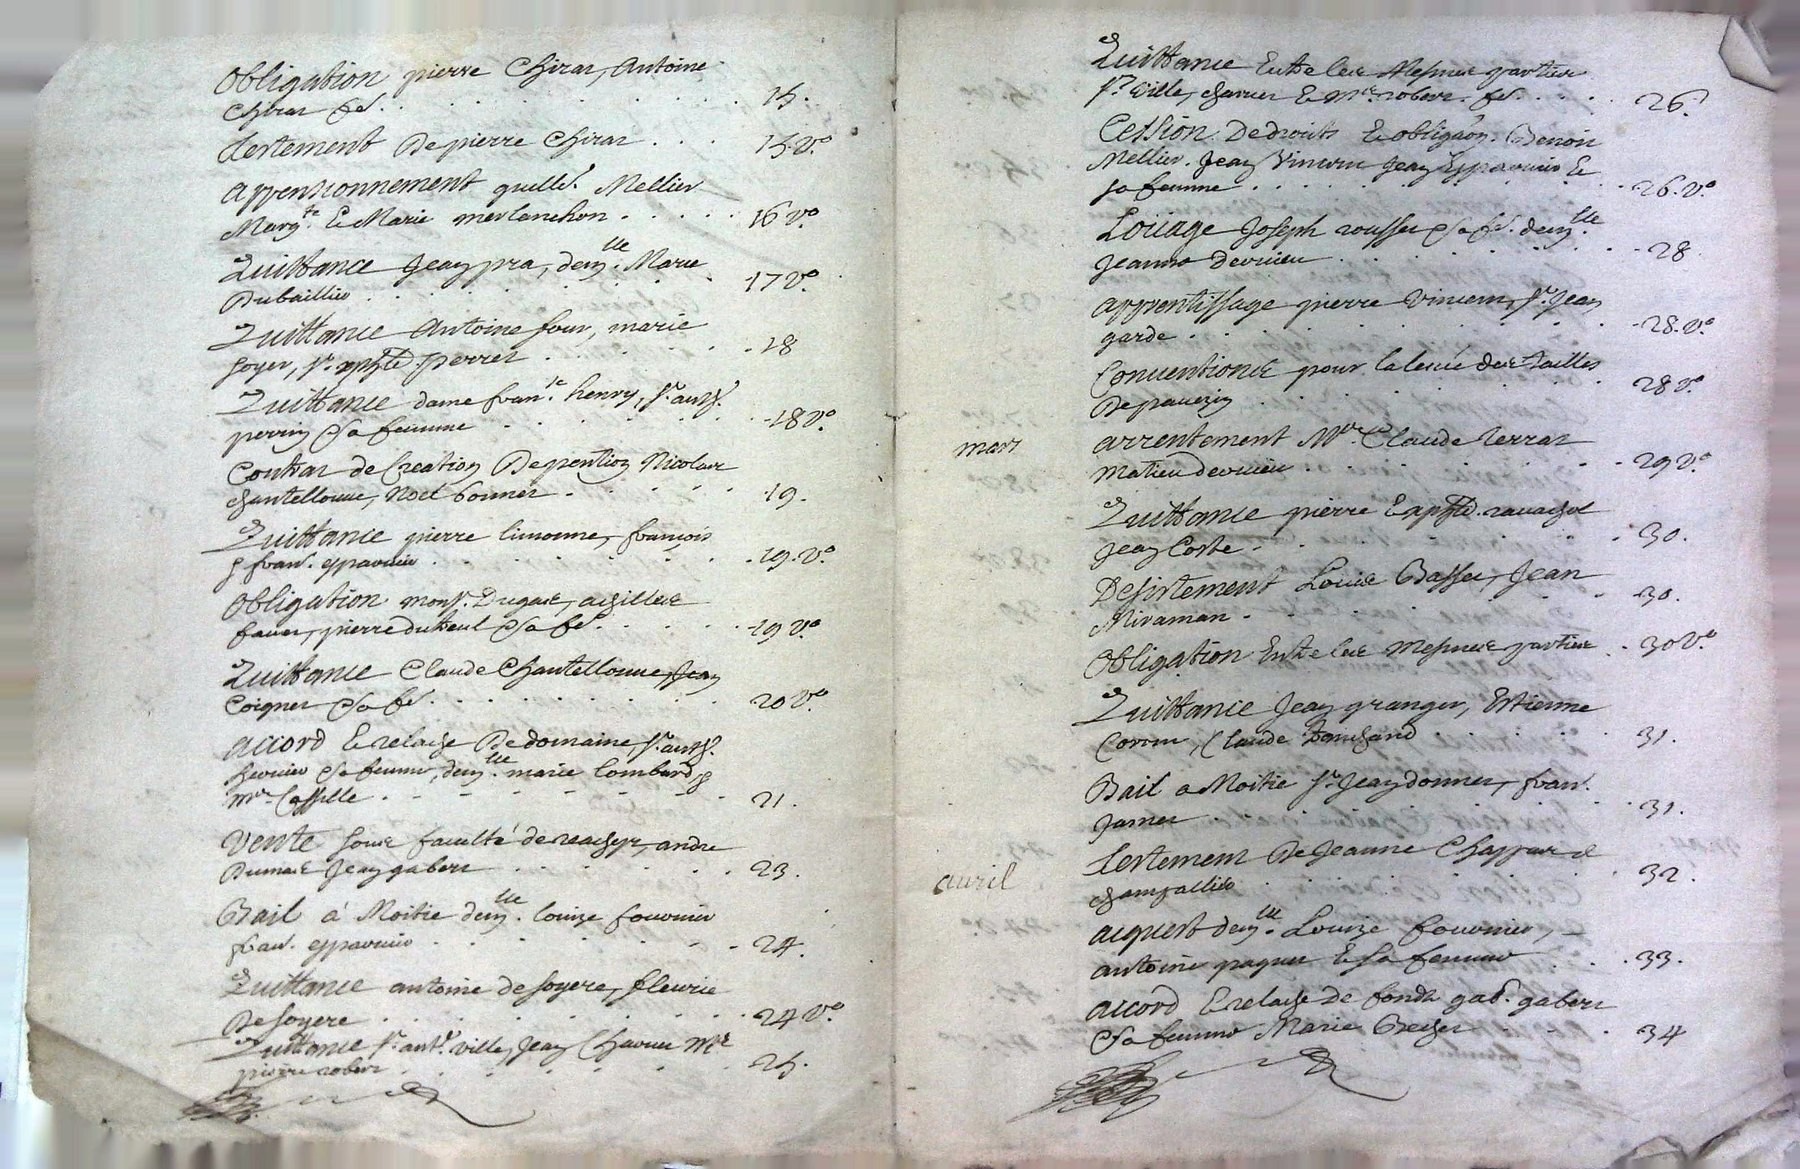 Obligation pierre Chirat, Antoine
Chirat fs. 15.
Testement De pierre Chirat 15. Vo.
Apprensionnement guille. Mellier
Margte. & Marie merlanchon 16 vo
Quittance Jean pra, demlle. Marie
Dubaillier 17 Vo.
Quittance Antoine four, marie
soyer, sr. perret 18
Quittance dame frane. henry, sr. anth.
perrin & sa femme 18 Vo.
Contrat de Creation De pention Nicolas
Chantelouue, Noel bonnet 19.
Quittance pierre limonne, francois
& fran. esparuier 19. Vo.
Obligation monsr. Dugas, achilles
fauet, pierre duteul & sa fe. 19 Vo
Quittance Claude Chantelouue, Jean
Coignet & sa fe. 20 Vo.
Accord & relache De domaine, sr. anth.
& sa femme, demlle. marie lombard &
Mre. Caffille 21.
Vente sous faculté de reachept, andre
Dumas Jean gabert 23.
Bail á Moitie demlle. louize fournier
fran. esparuier 24.
Quittance antoine de soyere, fleurie
De soyere 24 Vo.
Quittance sr. ant. ville, Jean Charuet Mre
pierre robert 25.
Quittance Entre les Mesmes parties
sr. ville, charuet & mre. robert. fs. 26.
Cession De droits & obligaon. Benoit
Mellier. Jean Vincent Jean Esparuier &
sa femme 26. Vo
Loüage Joseph rousset & sa fe. demlle
Jeanne Deurieu 28
Apprentissage pierre Vincent, sr. Jean
garde 28. Vo.
Conuentions pour la leueé des tailles
De pauezin 28 Vo.
mars
arrentement Mre. Claude Terrat
Matieu deurieu 29 Vo.
Quittance pierre & rauachol
Jean Coste 30.
Desistement Louise Basset, Jean
Miraman 30.
Obligation Entre les mesmes parties 30 Vo.
Quittance Jean granger, Estienne
Claude 31.
Bail a Moitie sr. Jean donnet, fran.
Jamet 31.
avril
Testement De Jeanne Chappard
champallier 32.
acquest demlle. Louize fournier,
antoine paquet & sa femme 33.
accord & relache de fonds gab. gabert
& sa femme Marie Bechet 34